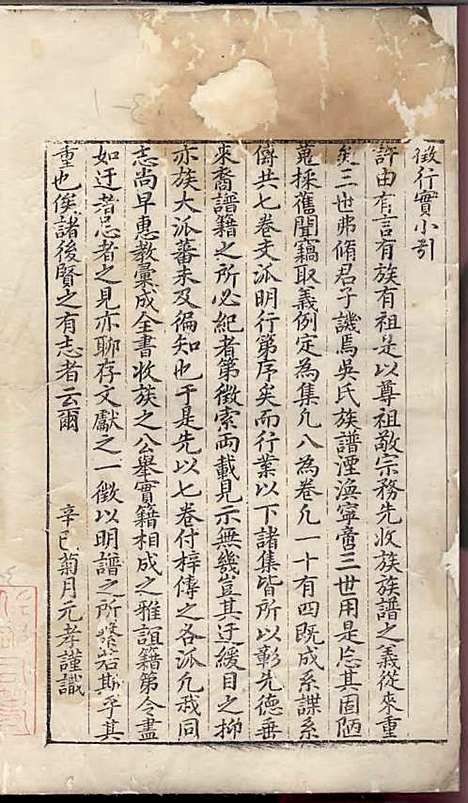 徵行實小引
許由有言有族有祖是以尊祖敬宗務先收族族譜之義從來重
矣三世弗脩君子譏焉吳氏族譜湮渙寧啻三世用是忘其固陋
蒐採舊聞竊取義例定為集凡八為卷凡一十有四既成系諜系
傳共七卷支派明行第序矣而行業以下諸集皆所以彰先德垂
來裔譜籍之所必紀者第徵索両載見示無幾豈其迂緩目之抑
亦族大派蕃未及徧知也于是先以七卷付梓傳之各派凡我同
志尚早惠教彙成全書收族之公舉實籍相成之雅誼籍第令盡
如迂者忌者之見亦聊存文獻之一徵以明譜之所繫若斯乎其
重也俟諸後賢之有志者云爾
辛巳菊月元孝謹識